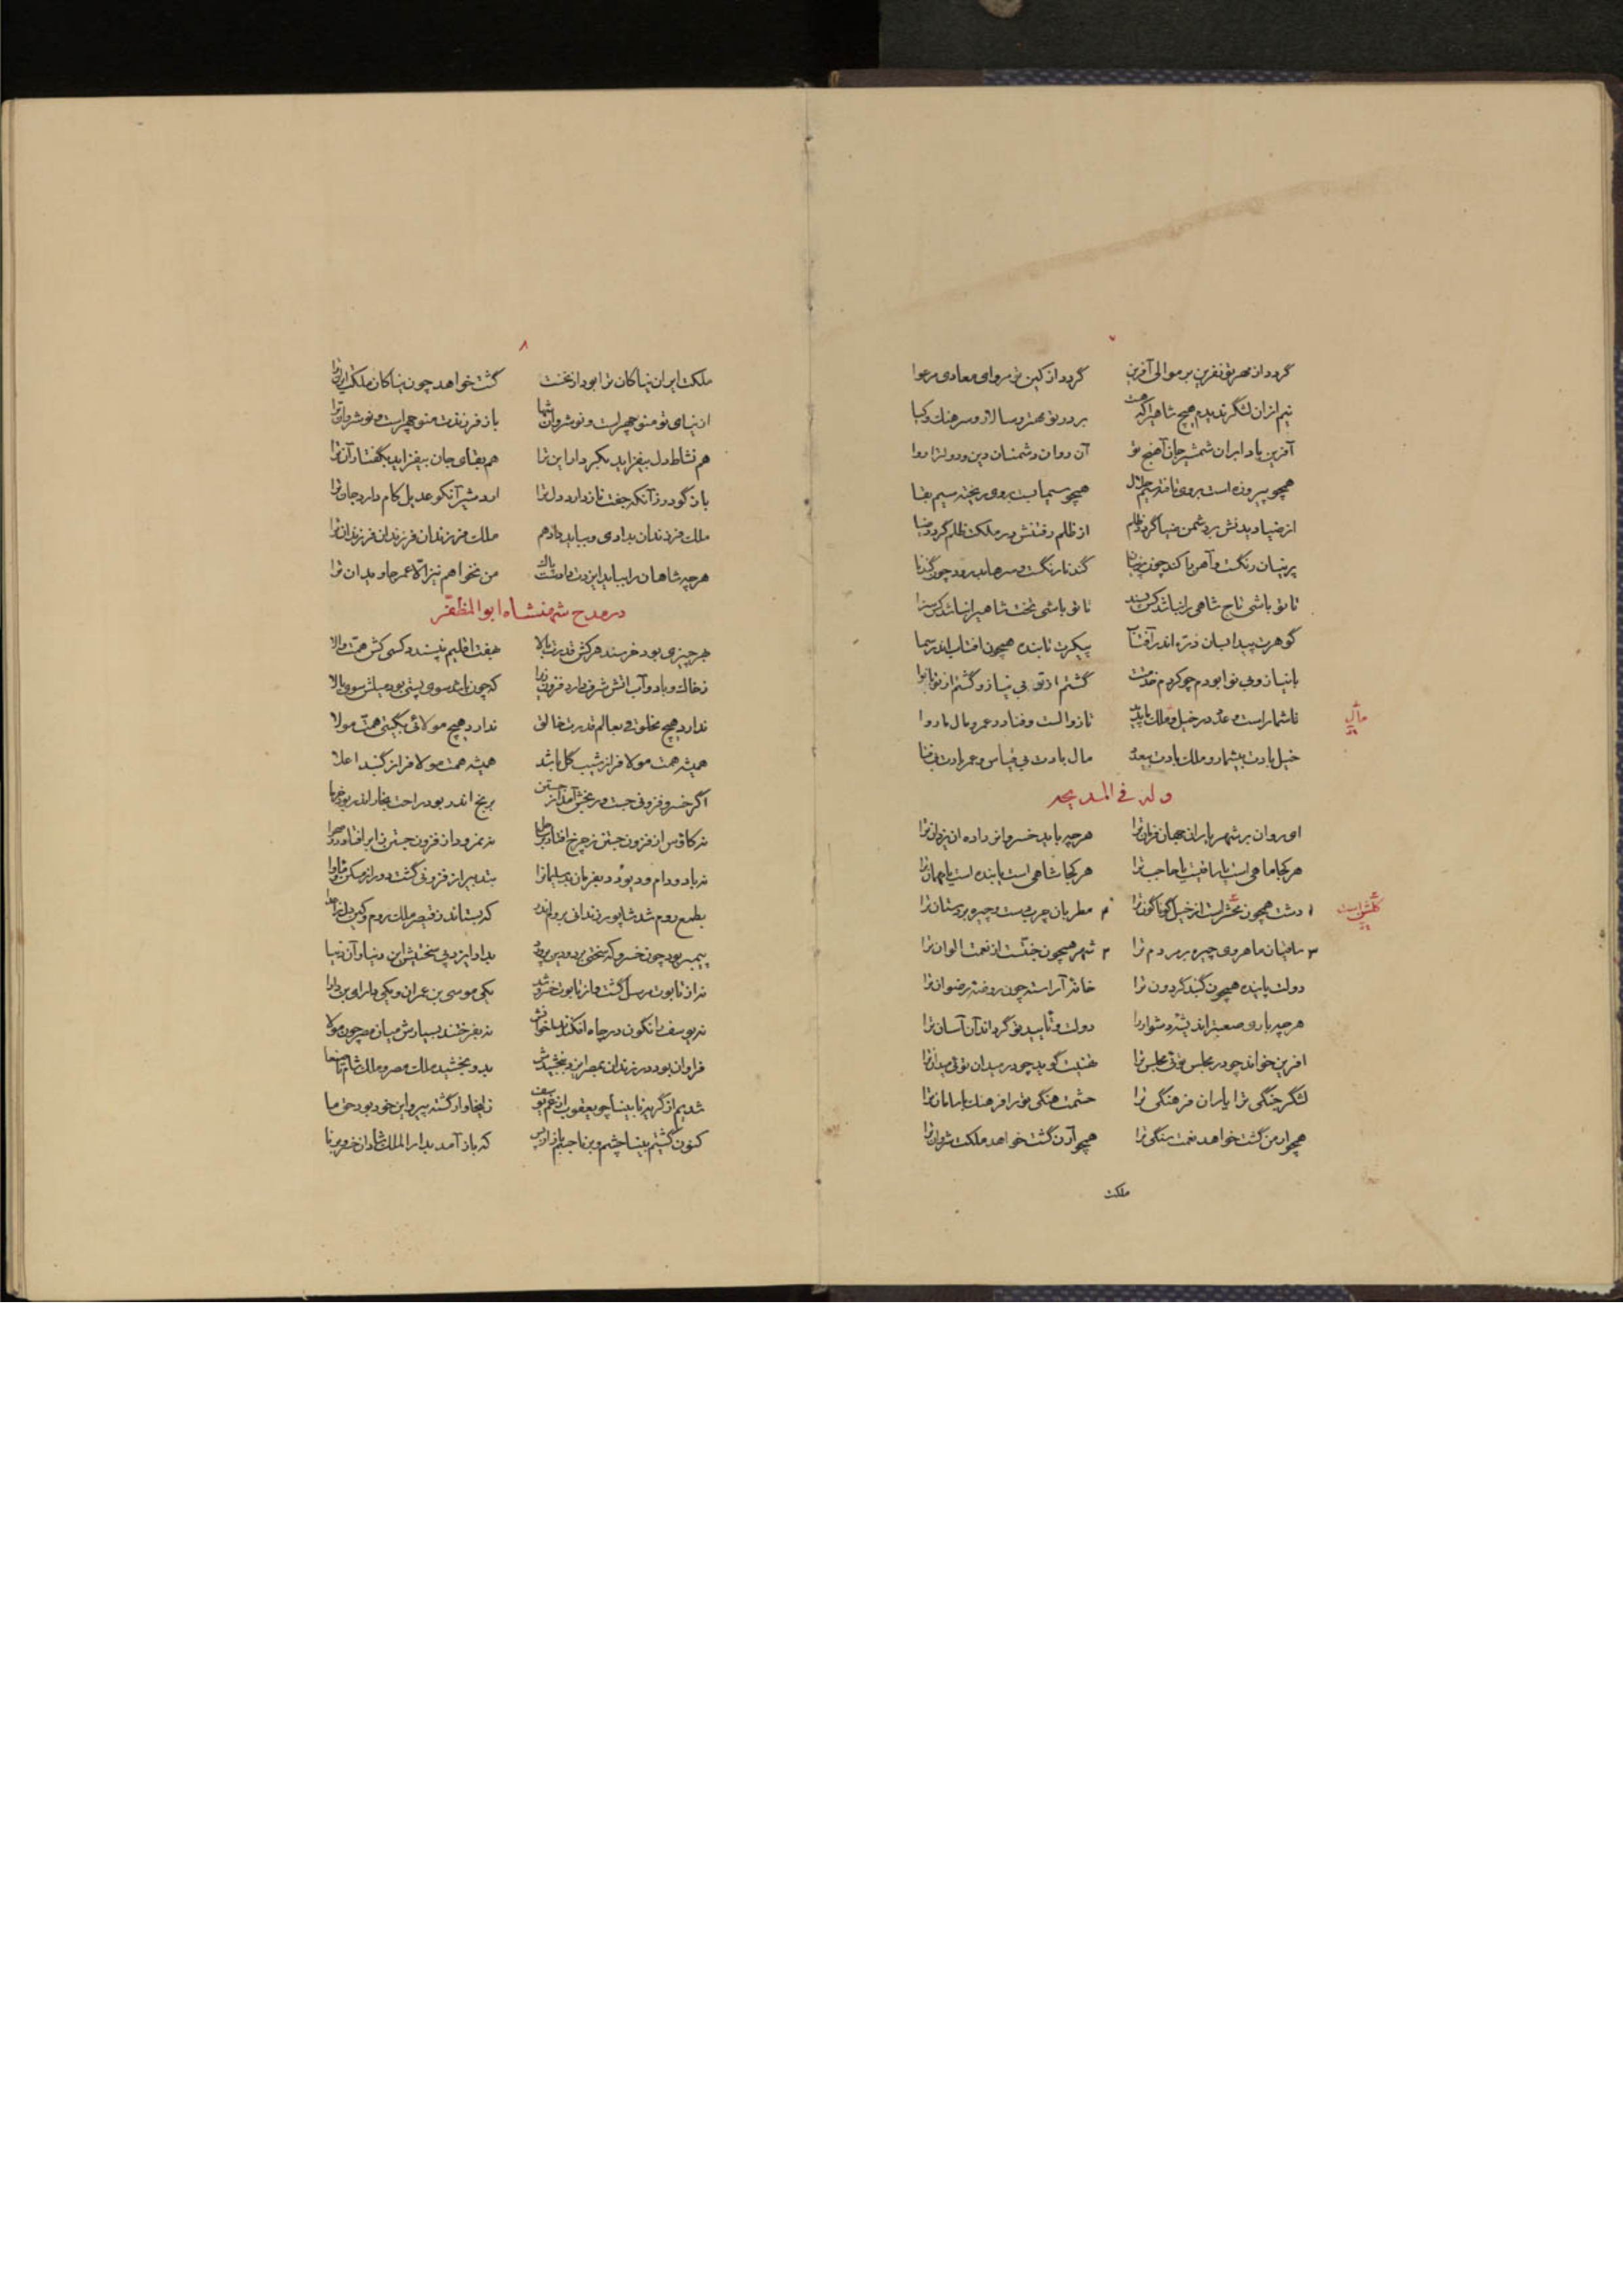 ۷
گردد از مهر تو نفرین بر موالی آفرین گردد از کین تو مروای معادی مرغوا
نیم ازان لشگر ندیدم هیچ شاهیرا که هست بر در تو مهتر و سالار و سرهنگ و کیا
آفرین باد ابران شمشیر جان آهنج تو آن روان دشمنان دین و دولترا روا
همچو پیروزه است بروی تافته سیم حلال همچو سیمابست بروی ریخته سیم بقا
از ضیا دیدنش بر دشمن ضیا گردد ظلم از ظلم رفتنش در ملکت ظلم گردد ضیا
پرنیان رنگست و آهن را کند چون پرنیان گندنا رنگست و سرها بدرود چون گندنا
تا تو باشی تاج شاهی را نباشد کس پسند تا تو باشی تخت شاهیرا نباشد کس سزا
گوهرت پیدا بسان ذره اندر آفتاب پیکرت تابنده همچون افتاب اندر سما
با نیاز و بی نوا بودم چو کردم خدمتت گشتم از تو بی نیاز و گشتم از تو با نوا
تا شمار است و عدد در خیل و ملک پایدت تا زوالست و فنا در عمر و مال ما روا
مال
خیل بادت بیشمار و ملک بادت بیعدد مال بادت بی قیاس و عمر بادت بی فنا
وله فی المدیحه
ای روان بر شهریاران جهان فرمان ترا هر چه باید خسروانرا داده آن یزدان ترا
هر کجا ماهی است یا رافیت یا حاجب ترا هر کجا شاهی است یا بنده است یا مهمان ترا
۱ دشت همچون محشر است از خیل گوناگون ترا ۲ مطربان چرب دست و چیره بر دستان ترا
گلشن است
۳ ساقیان ماهروی چیره بر مردم ترا ۴ شهر همچون جنّتست از نعمت الوان ترا
دولت پاینده همچون گنبد گردون ترا خانه آراسته چون روضه رضوان ترا
هر چه باری صعبتر اندیشه و دشوارتر دولت و تأیید تو گرداند آن آسان ترا
افرین خواند چو در مجلس توئی مجلس ترا تهنیت گوید چو در میدان توئی میدان ترا
لشگر جنگی ترا یاران فرهنگی ترا حشمت هنگی تو را فرهنگ با سامان ترا
همچو ارمن گشت خواهد نعمت سنگی ترا همچو آرن گشت خواهد ملکت شروان ترا
ملکت
۸
ملکت ایران نیاکان ترا بود از نخست گشت خواهد چون نیاکان ملکت ایران ترا
از نیای تو منوچهر است و نوشروان شها باز فرزندت منوچهر است و نوشروان ترا
هم نشاط دل بیفزاید بکردار این ترا هم بقای جان بیفزاید بگفتار آن ترا
باز گودرز آنکه جفت ناز دارد دل ترا اردشیر آنکو عدیل کام دارد جان ترا
ملک فرزندان بدادی و بیاید داد هم ملک فرزندان فرزندان فرزندان ترا
هر چه شاهان را بباید ایزدت داد است پاک من نخواهم نیز الّا عمر جاویدان ترا
در مدح شهنشاه ابوالمظفّر
بهر چیزی بود خرسند هر کش قدرت بالا بهفت اقلیم نپسندد کسی کش همّت والا
ز خاک و باد و آب اتش شرف دارد فزون زیرا که چون باشد سوی پستی بود میلش سوی بالا
ندارد هیچ مخلوقی بعالم قدرت خالق ندارد هیچ مولائی بگیتی همّت مولا
همیشه همت مولا فراز شیب گل باشد همیشه همت مولا فراز گنبد اعلا
اگر خسرو فزونی جست در رنجش آمد از جستن برنج اندر بود راحت بخار اندر بود خرما
نه کاوس از فزون جستن ز چرخ افتاد بر دریا نه نمرود از فزون جستن ز ابر افتاد در صحرا
نه باد و دام و دیو و دد بفرمان بد سلیمانرا بتدبیر از فزونی گشت دور از مسکن و مأوا
بطمع روم شد شاپور زندانی بروم اندر که بستاند ز قیصر ملک روم و کین دل ز اعدا
پیمبر بود چون خسرو که سختی برد و دین پرورد بداد ایزد پی سختیش این دنیا و آن دنیا
نه از تابوت مرسل گشت و از تابوت خسرو شد یکی موسی بن عمران و یکی دارای بن دارا
نه یوسف را نگون در چاه افکندند اخوانش نه بفرختند بسیارش میان مصر چون مولا
فراوان بود در زندان بمصر ایزد ببخشیدش بدو بخشید ملک مصر و ملک شام تا صنعا
شدیم از گریه نابینا چو یعقوب از غم یوسف زلیخاوار گشته پیر و این خود بود حق ما
کنون گشتیم بینا چشم و برنا جسم باز از پس که باز آمد بدار الملک شادان خسرو برنا